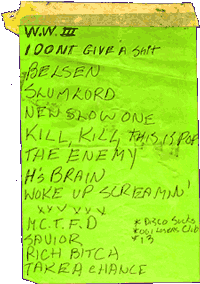 W.W. III
I DONT GIVE A Shit
BELSEN
SLUMLORD
NEW SLOW ONE
KILL, KILL, THIS IS POP
THE ENEMY
H's BRAIN
WOKE UP SCREAMIN'
M.C.T.F.D
SAVIOR
RICH BITCH
TAKE A CHANCE
DISCO SUCKS
KOOL LOSERS Club
F13